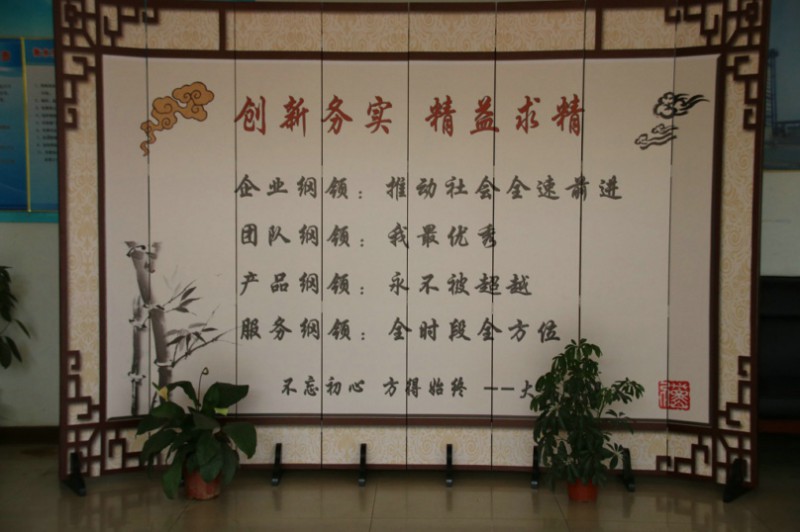 创新务实 精益求精
企业纲领：推动社会全速前进
团队纲领：我最优秀
产品纲领：永不被超越
服务纲领：全时段全方位
不忘初心 方得始终 ——大